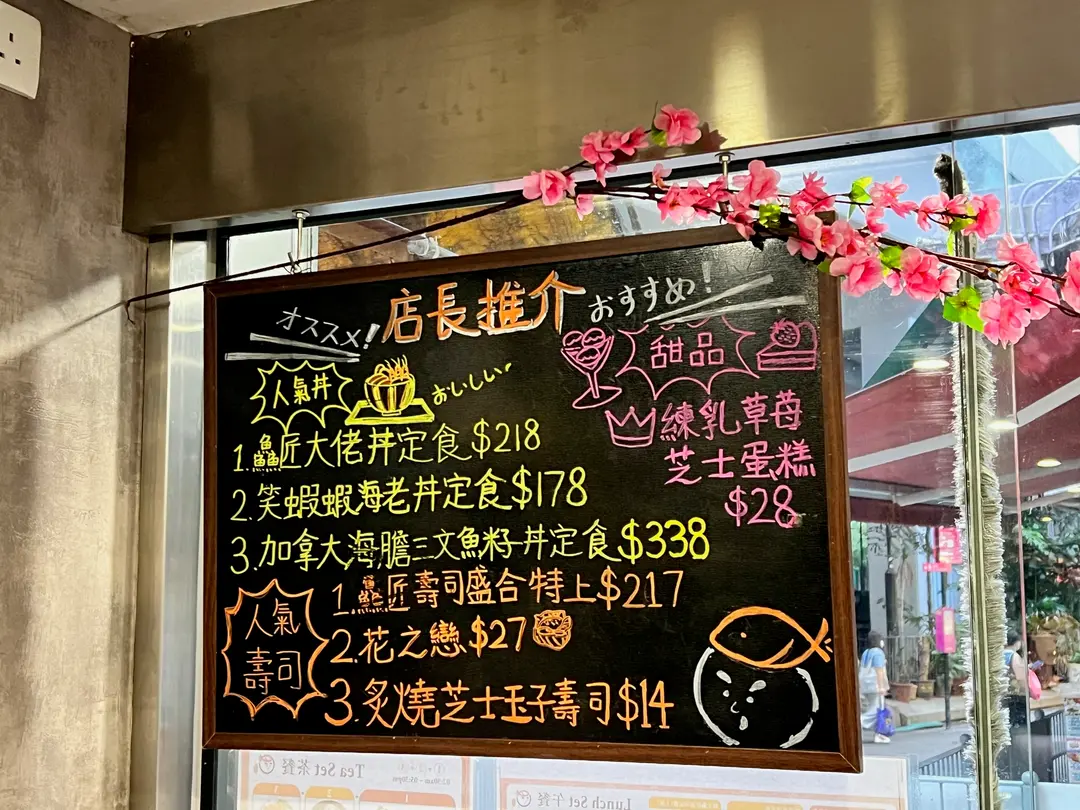 オススメ!
店長推介
おすすめ!
人氣丼
おいしい
1.鱻匠大佬丼定食$218
2.笑蝦蝦海老丼定食$178
3.加拿大海膽三文魚籽丼定食$338
甜品
練乳草苺
芝士蛋糕
$28
人氣
壽司
1.鱻匠壽司盛合特上$217
2.花之戀$27
3.炙燒芝士玉子壽司$14
Tea Set 茶餐
Lunch Set 午餐